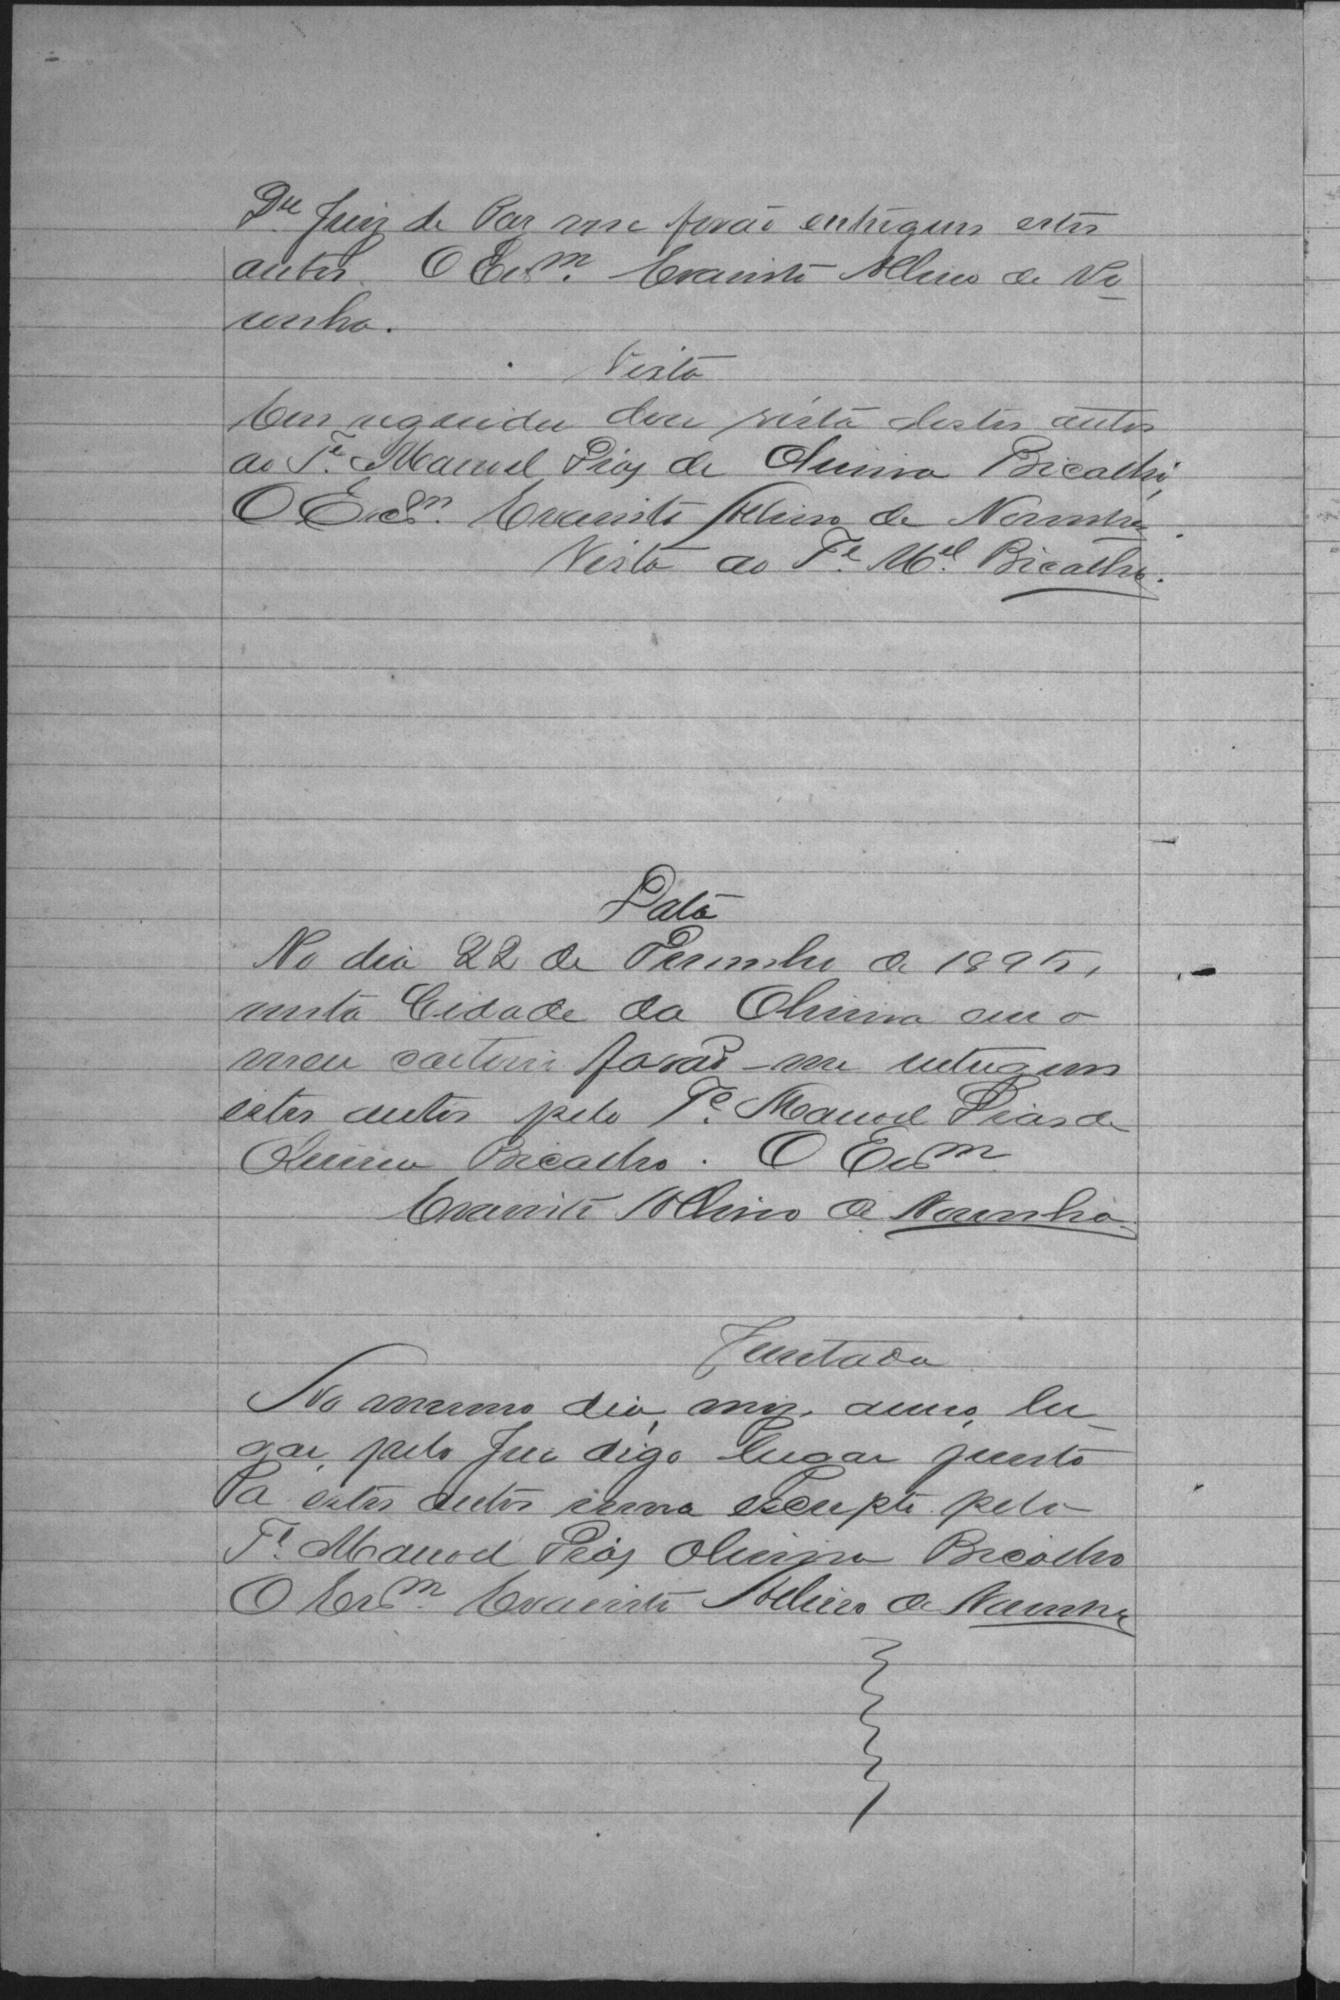 Juiz de Paz me forão entregues estes
autos. O Escm. Evaristo Albino de No
ronha.
Vista
Em seguida dou vista destes autos
ao Te. Manoel Dias de Oliveira Bicalho,
O Escm. Evaristo Albino de Noronha.
Vista ao Te. Mel. Bicalho.
Data
No dia 22 de Dezembro de 1895,
nesta Cidade da Oliveira em o
meu cartorio forão-me entregues
estes autos pelo Te. Manoel Dias de
Oliveira Bicalho. O Escm
Evaristo Albino de Noronha.
Juntada
No mesmo dia, mez, anno, lu
gar, pelo Jui digo lugar junto
a estes autos uma escripta pelo
Te. Manoel Dias Oliveira Bicalho
O Escm. Evaristo Albino de Noronha